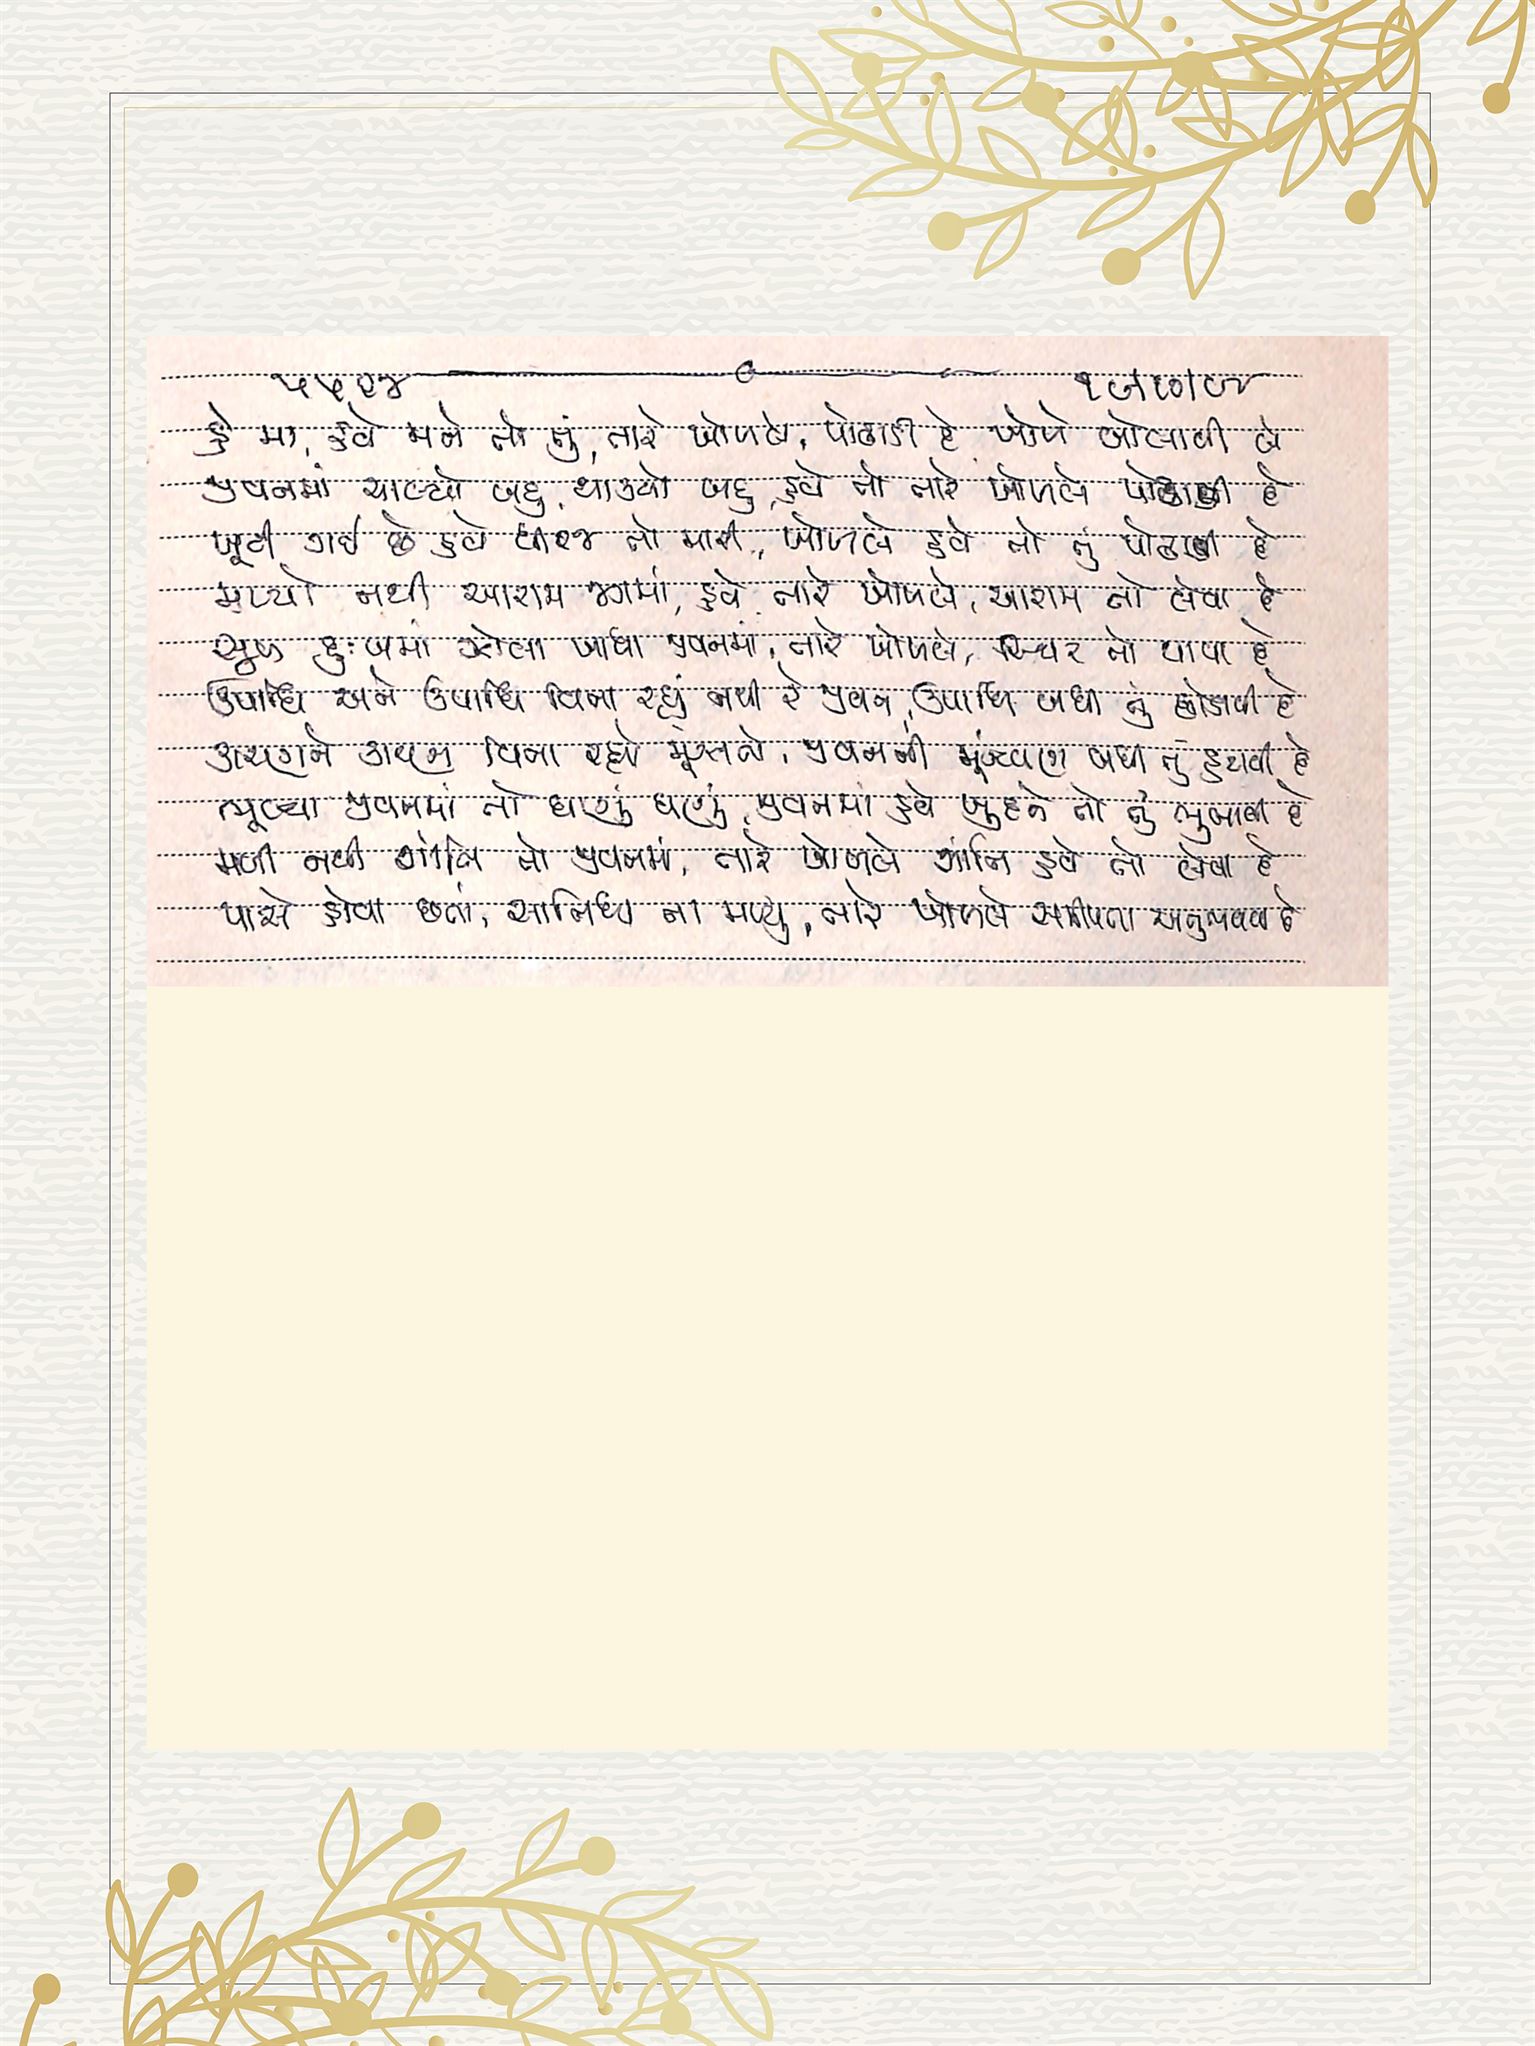 હે મા, હવે મને તો તું, તારે ખોળલે, પોઢાડી દે ખોળે બોલાવી લે
જીવનમાં ચાલ્યો બહુ, થાક્યો બહુ, હવે તો તારે ખોળલે પોઢાવી દે
ખૂટી ગઈ છે હવે ધીરજ તો મારી, ખોળલે હવે તો તું પોઢાવી દે
મળ્યો નથી આરામ જગમાં, હવે તારે ખોળલે, આરામ તો લેવા દે
સુખ દુઃખમાં ઝોલા ખાધા જીવનમાં, તારે ખોળલે, સ્થિર તો થાવા દે
ઉપાધિ અને ઉપાધિ વિના રહ્યું નથી રે જીવન, ઉપાધિ બધી તું છોડાવી દે
વિના રહ્યો મૂંઝાતો, જીવનની મૂંઝવણ બધી તું હટાવી દે
ભૂલ્યા જીવનમાં તો ઘણું ઘણું, જીવનમાં હવે ખુદને તો તું ભુલાવી દે
મળી નથી શાંતિ તો જીવનમાં, તારે ખોળલે શાંતિ હવે તો લેવા દે
પાસે હોવા છતાં, સાનિધ્ય ના મળ્યું, તારે ખોળલે સમીપતા અનુભવવા દે